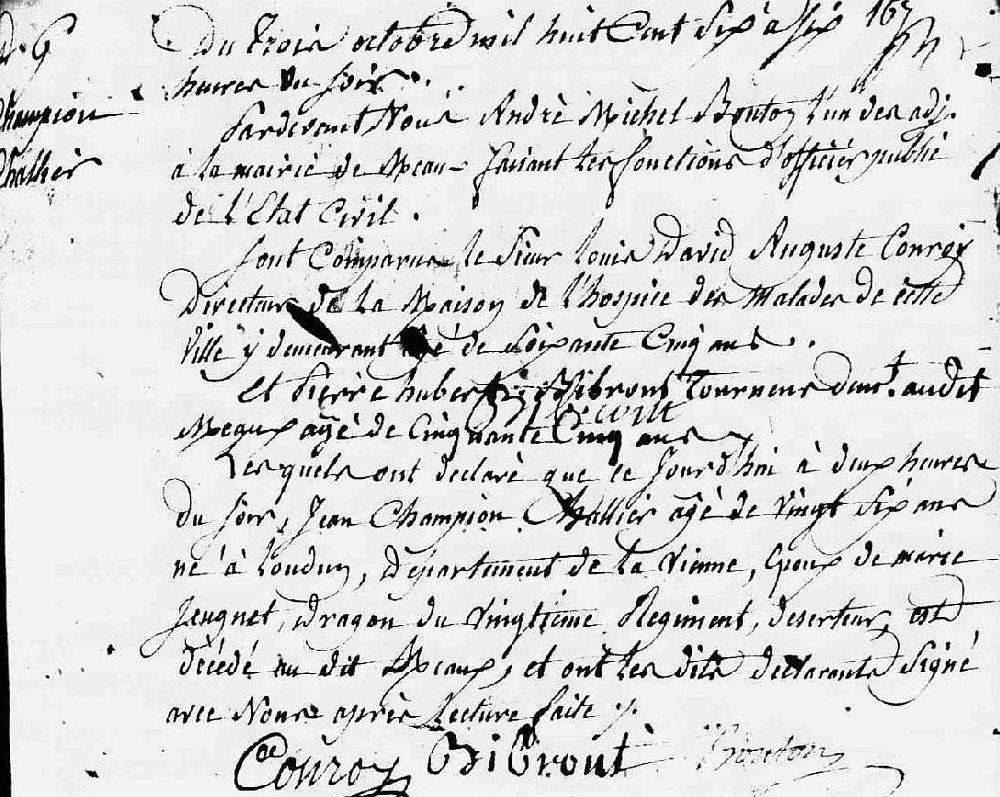 Du trois octobre mil huit Cent Six à Six 167
heures du soir.
Champion
Pardevant Nous André Michel Bouton l'un des adj.
Challier
à la mairie de Meaux faisant les fonctions d'officier public
de l'Etat Civil.
Sont Comparus le Sieur Louis David Auguste Conroy
Directeur de la Maison de l'hospice des Malades de cette
Ville y demeurant agé de Soixante Cinq ans.
Et Pierre hubert Bibront Tourneur demt. audit
Bibront
Meaux agé de Cinquante Cinq ans
Lesquels ont declaré que ce Jourd'hui à deux heures
du soir, Jean Champion Challier agé de vingt Six ans
né à Loudun, Département de la Vienne, Epoux de marie
Jeugnet, Dragon du vingtieme Regiment, deserteur, est
décédé au dit Meaux, et ont les dits declarants Signé
avec Nous après Lecture faite.
Conroy Bibront Bouton